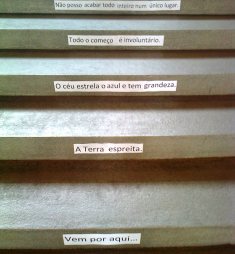 Não posso acabar todo inteiro num único lugar.
Todo o começo é involuntário.
O céu estrela o azul e tem grandeza.
A Terra espreita.
Vem por aqui...